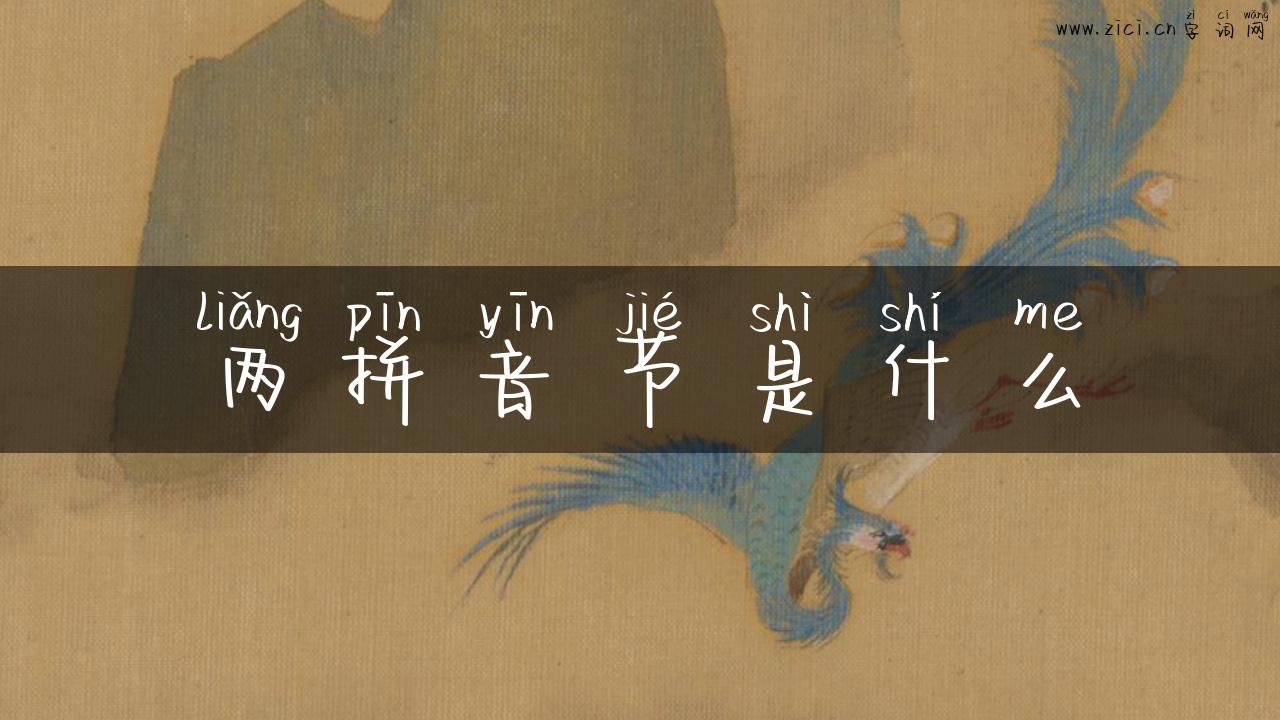 zì cí wǎng
www.zici.cn 字 词 网
liǎng pīn yīn jié shì shí me
两 拼 音 节 是 什 么